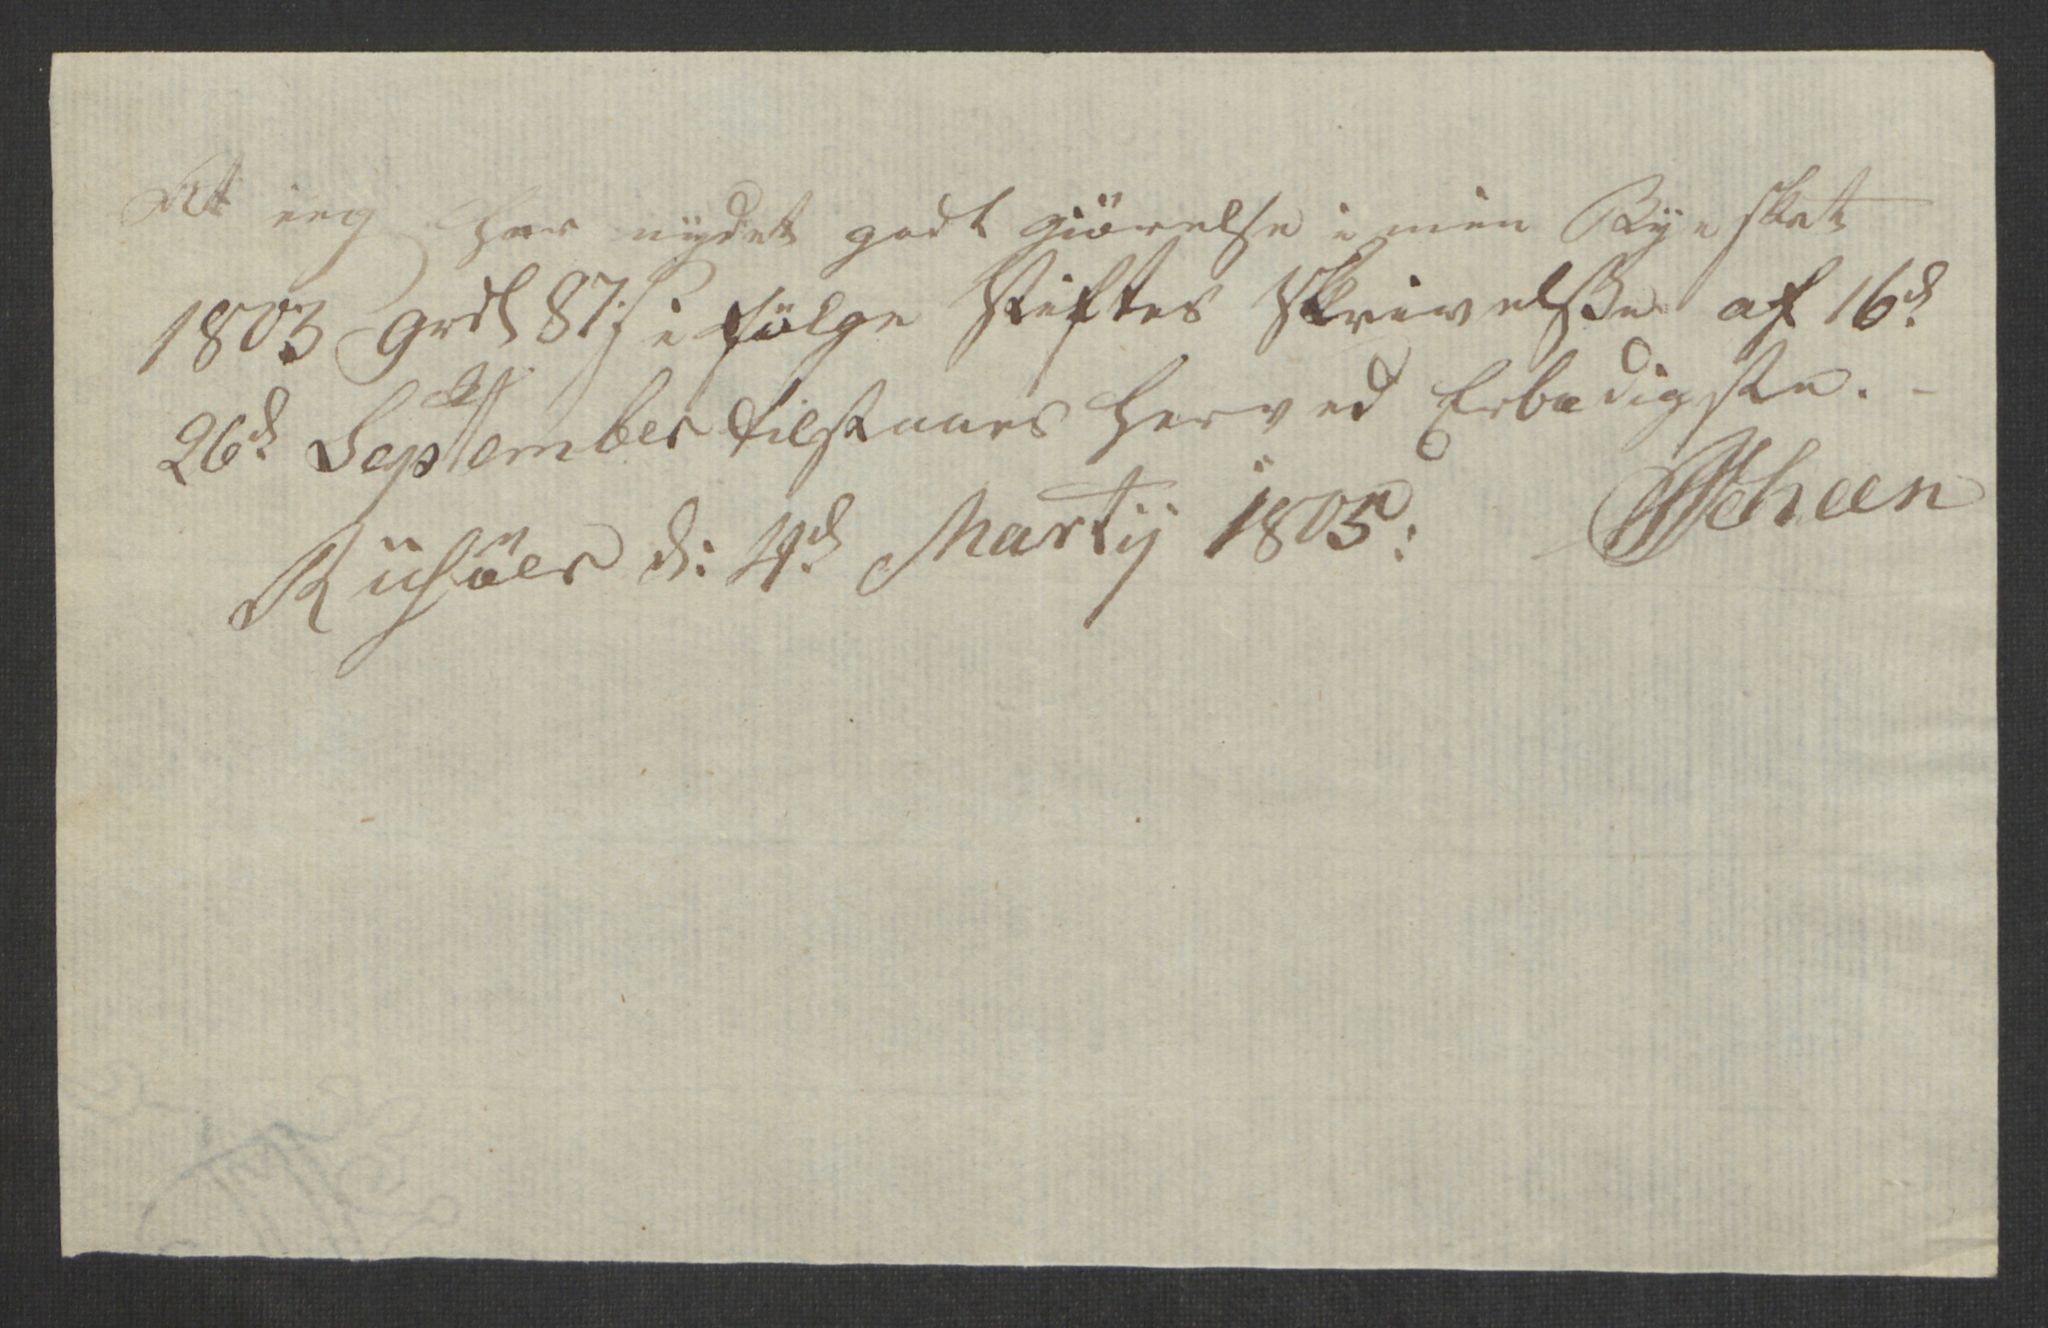 At ieg har nydet godt giörelse i min Bye skat
1803 9rdl 87s i fölge Stiftes Skrivelße af 16d
26d September tilstaaes herved Erbødigste. -
Riisöer d: 4d Martij 1805: Scheen